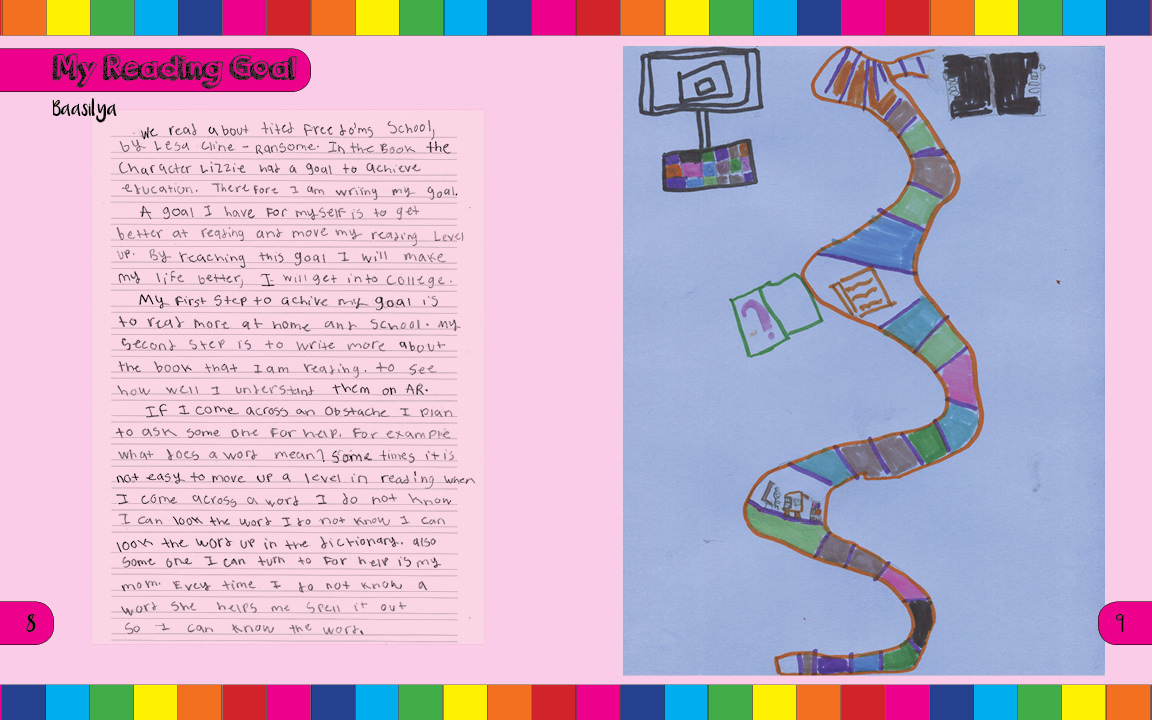 My Reading Goal
Baasilya
We read about tited Free do'ms School,
by Lesa Cline - Ransome. In the Book the
Character Lizzie had a goal to achieve
education. There fore I am wriing my goal.
A goal I have for my self is to get
better at reading and move my reading Level
up. By reaching this goal I will make
my life better, I will get into College.
My first Step to achive my goal is
to read more at home and School. My
Second Step is to write more about
the book that I am reading. to see
how well I understand them on AR.
If I come across an Obstache I plan
to ask some one for help. For example
what does a word mean? Some times it is
not easy to move up a level in reading when
I come across a word I do not know
I can look the word I do not know I can
look the word up in the dictionary. also
Some one I can turn to for help is my
mom. Evey time I do not know a
word she helps me spell it out
So I can know the word.
8
9